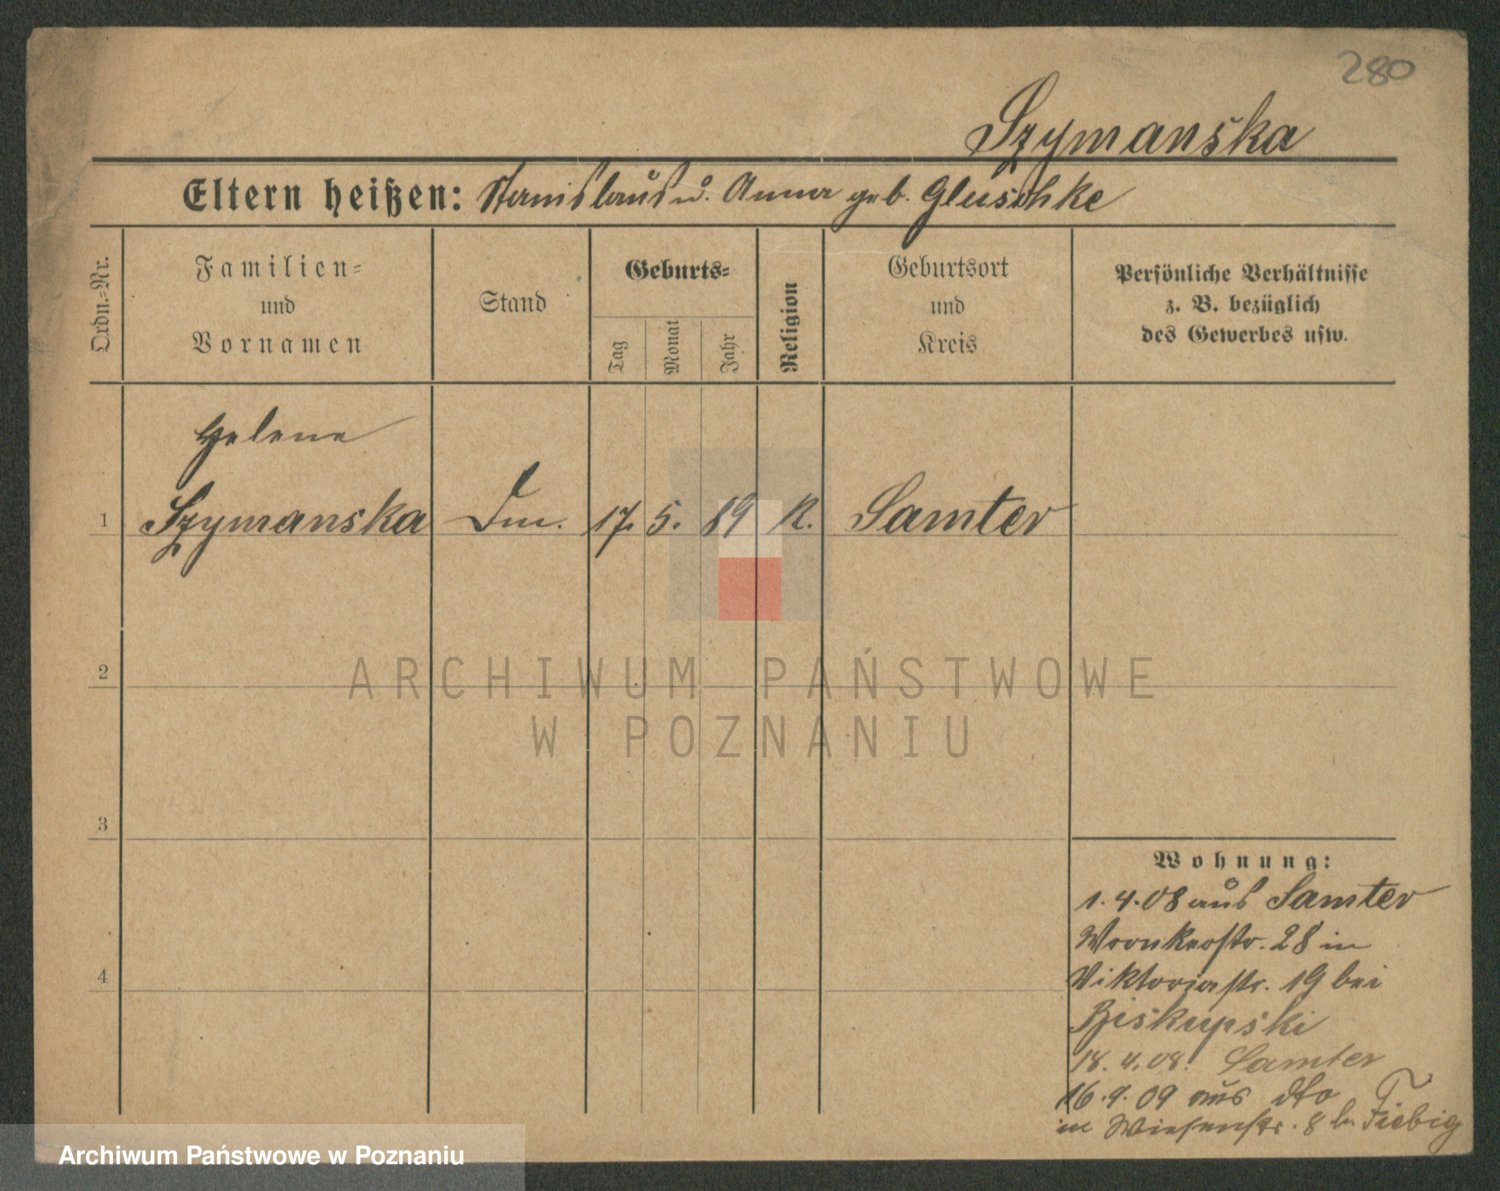 280
Szymanska
Eltern heißen: Stanislaus u. Anna geb. Gluschke
Ordn.-Nr.
Familien-
und
Vornamen
Stand
Geburts-
Tag
Monat
Jahr
Religion
Geburtsort
und
Kreis
Persönliche Verhältnisse
z. B. bezüglich
des Gewerbes usw.
Helene
1 Szymanska 17. 5. 89 K. Samter
2
3
4
Wohnung:
1.4.08 aus Samter
Wronkerstr. 28 in
Viktoriastr. 19 bei
Biskupski
18.4.08. Samter
16.9.09 aus dto
in Wiesenstr. 8 b. Fiebig
ARCHIWUM PAŃSTWOWE
W POZNANIU
Archiwum Państwowe w Poznaniu